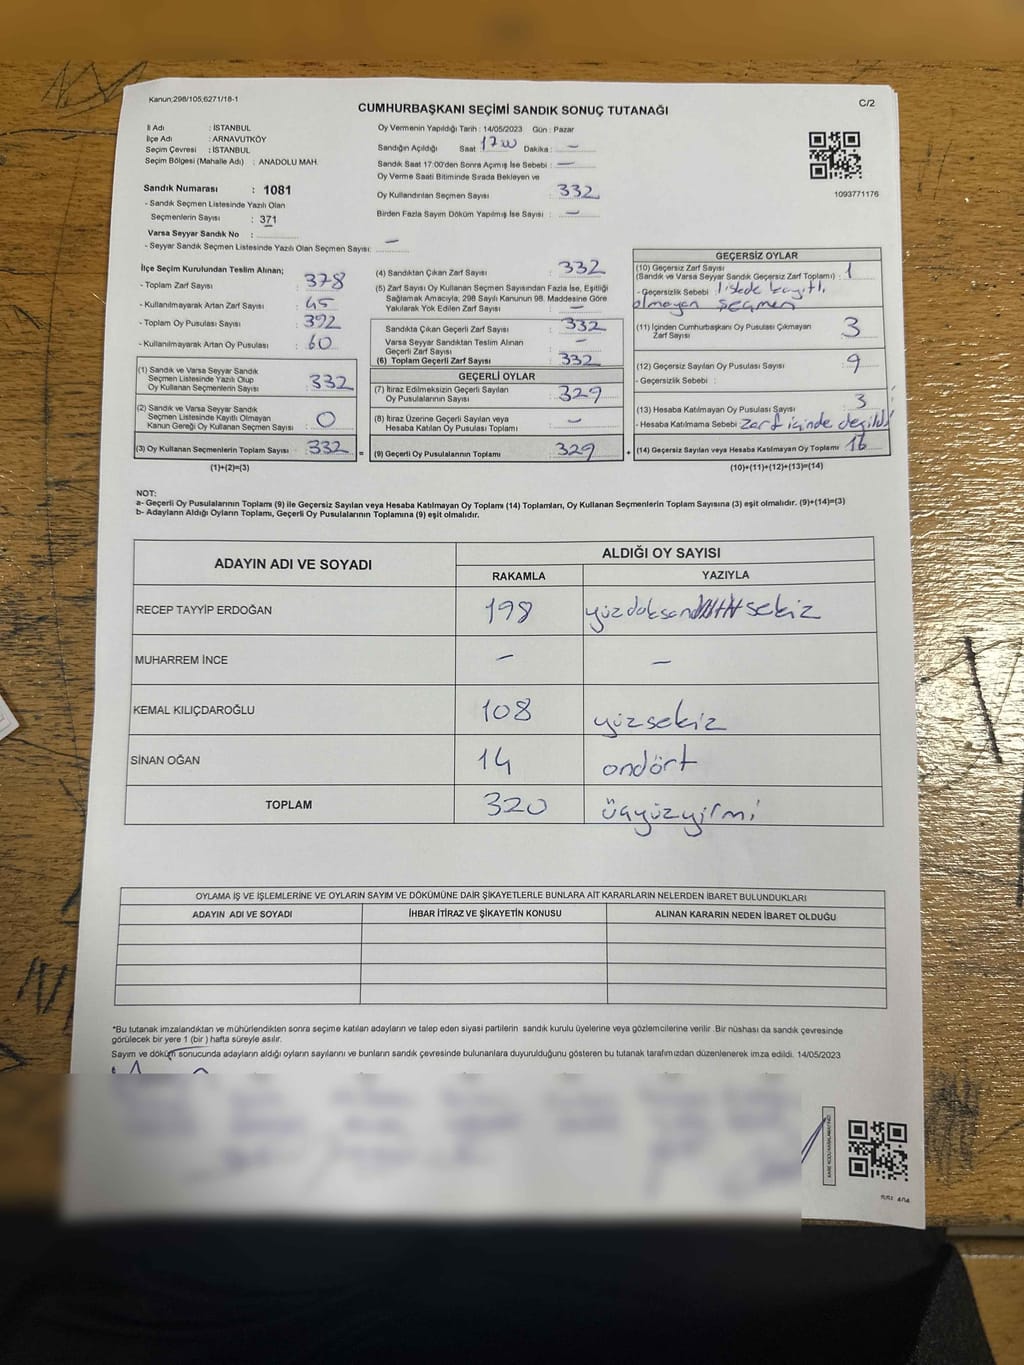 Kanun;298/105,6271/18-1
C/2
CUMHURBAŞKANI SEÇİMİ SANDIK SONUÇ TUTANAĞI
İl Adı : İSTANBUL
İlçe Adı : ARNAVUTKÖY
Seçim Çevresi : İSTANBUL
Seçim Bölgesi (Mahalle Adı) : ANADOLU MAH.
Sandık Numarası : 1081
- Sandık Seçmen Listesinde Yazılı Olan
Seçmenlerin Sayısı : 371
Varsa Seyyar Sandık No :
- Seyyar Sandık Seçmen Listesinde Yazılı Olan Seçmen Sayısı: —
Oy Vermenin Yapıldığı Tarih : 14/05/2023 Gün : Pazar
Sandığın Açıldığı Saat : 17 00 Dakika : —
Sandık Saat 17:00'den Sonra Açımış İse Sebebi : —
Oy Verme Saati Bitiminde Sırada Bekleyen ve
Oy Kullandırılan Seçmen Sayısı : 332
Birden Fazla Sayım Döküm Yapılmış İse Sayısı : —
1093771176
İlçe Seçim Kurulundan Teslim Alınan;
- Toplam Zarf Sayısı : 378
- Kullanılmayarak Artan Zarf Sayısı : 45
- Toplam Oy Pusulası Sayısı : 392
- Kullanılmayarak Artan Oy Pusulası : 60
(1) Sandık ve Varsa Seyyar Sandık
Seçmen Listesinde Yazılı Olup
Oy Kullanan Seçmenlerin Sayısı : 332
(2) Sandık ve Varsa Seyyar Sandık
Seçmen Listesinde Kayıtlı Olmayan
Kanun Gereği Oy Kullanan Seçmen Sayısı : 0
(3) Oy Kullanan Seçmenlerin Toplam Sayısı : 332
(1)+(2)=(3)
(4) Sandıktan Çıkan Zarf Sayısı : 332
(5) Zarf Sayısı Oy Kullanan Seçmen Sayısından Fazla İse, Eşitliği
Sağlamak Amacıyla; 298 Sayılı Kanunun 98. Maddesine Göre
Yakılarak Yok Edilen Zarf Sayısı : —
Sandıkta Çıkan Geçerli Zarf Sayısı : 332
Varsa Seyyar Sandıktan Teslim Alınan
Geçerli Zarf Sayısı : —
(6) Toplam Geçerli Zarf Sayısı : 332
GEÇERLİ OYLAR
(7) İtiraz Edilmeksizin Geçerli Sayılan
Oy Pusulalarının Sayısı : 329
(8) İtiraz Üzerine Geçerli Sayılan veya
Hesaba Katılan Oy Pusulası Toplamı : —
= (9) Geçerli Oy Pusulalarının Toplamı : 329
GEÇERSİZ OYLAR
(10) Geçersiz Zarf Sayısı
(Sandık ve Varsa Seyyar Sandık Geçersiz Zarf Toplamı) : 1
- Geçersizlik Sebebi : listede kayıtlı
olmayan seçmen
(11) İçinden Cumhurbaşkanı Oy Pusulası Çıkmayan
Zarf Sayısı : 3
(12) Geçersiz Sayılan Oy Pusulası Sayısı : 9
- Geçersizlik Sebebi :
(13) Hesaba Katılmayan Oy Pusulası Sayısı : 3
- Hesaba Katılmama Sebebi : zarf içinde değildi
+ (14) Geçersiz Sayılan veya Hesaba Katılmayan Oy Toplamı : 16
(10)+(11)+(12)+(13)=(14)
NOT:
a- Geçerli Oy Pusulalarının Toplamı (9) ile Geçersiz Sayılan veya Hesaba Katılmayan Oy Toplamı (14) Toplamları, Oy Kullanan Seçmenlerin Toplam Sayısına (3) eşit olmalıdır. (9)+(14)=(3)
b- Adayların Aldığı Oyların Toplamı, Geçerli Oy Pusulalarının Toplamına (9) eşit olmalıdır.
ADAYIN ADI VE SOYADI
ALDIĞI OY SAYISI
RAKAMLA YAZIYLA
RECEP TAYYİP ERDOĞAN 198 yüzdoksan sekiz
MUHARREM İNCE — —
KEMAL KILIÇDAROĞLU 108 yüzsekiz
SİNAN OĞAN 14 ondört
TOPLAM 320 üçyüzyirmi
OYLAMA İŞ VE İŞLEMLERİNE VE OYLARIN SAYIM VE DÖKÜMÜNE DAİR ŞİKAYETLERLE BUNLARA AİT KARARLARIN NELERDEN İBARET BULUNDUKLARI
ADAYIN ADI VE SOYADI İHBAR İTİRAZ VE ŞİKAYETİN KONUSU ALINAN KARARIN NEDEN İBARET OLDUĞU
*Bu tutanak imzalandıktan ve mühürlendikten sonra seçime katılan adayların ve talep eden siyasi partilerin sandık kurulu üyelerine veya gözlemcilerine verilir .Bir nüshası da sandık çevresinde
görülecek bir yere 1 (bir ) hafta süreyle asılır.
Sayım ve döküm sonucunda adayların aldığı oyların sayılarını ve bunların sandık çevresinde bulunanlara duyurulduğunu gösteren bu tutanak tarafımızdan düzenlenerek imza edildi. 14/05/2023